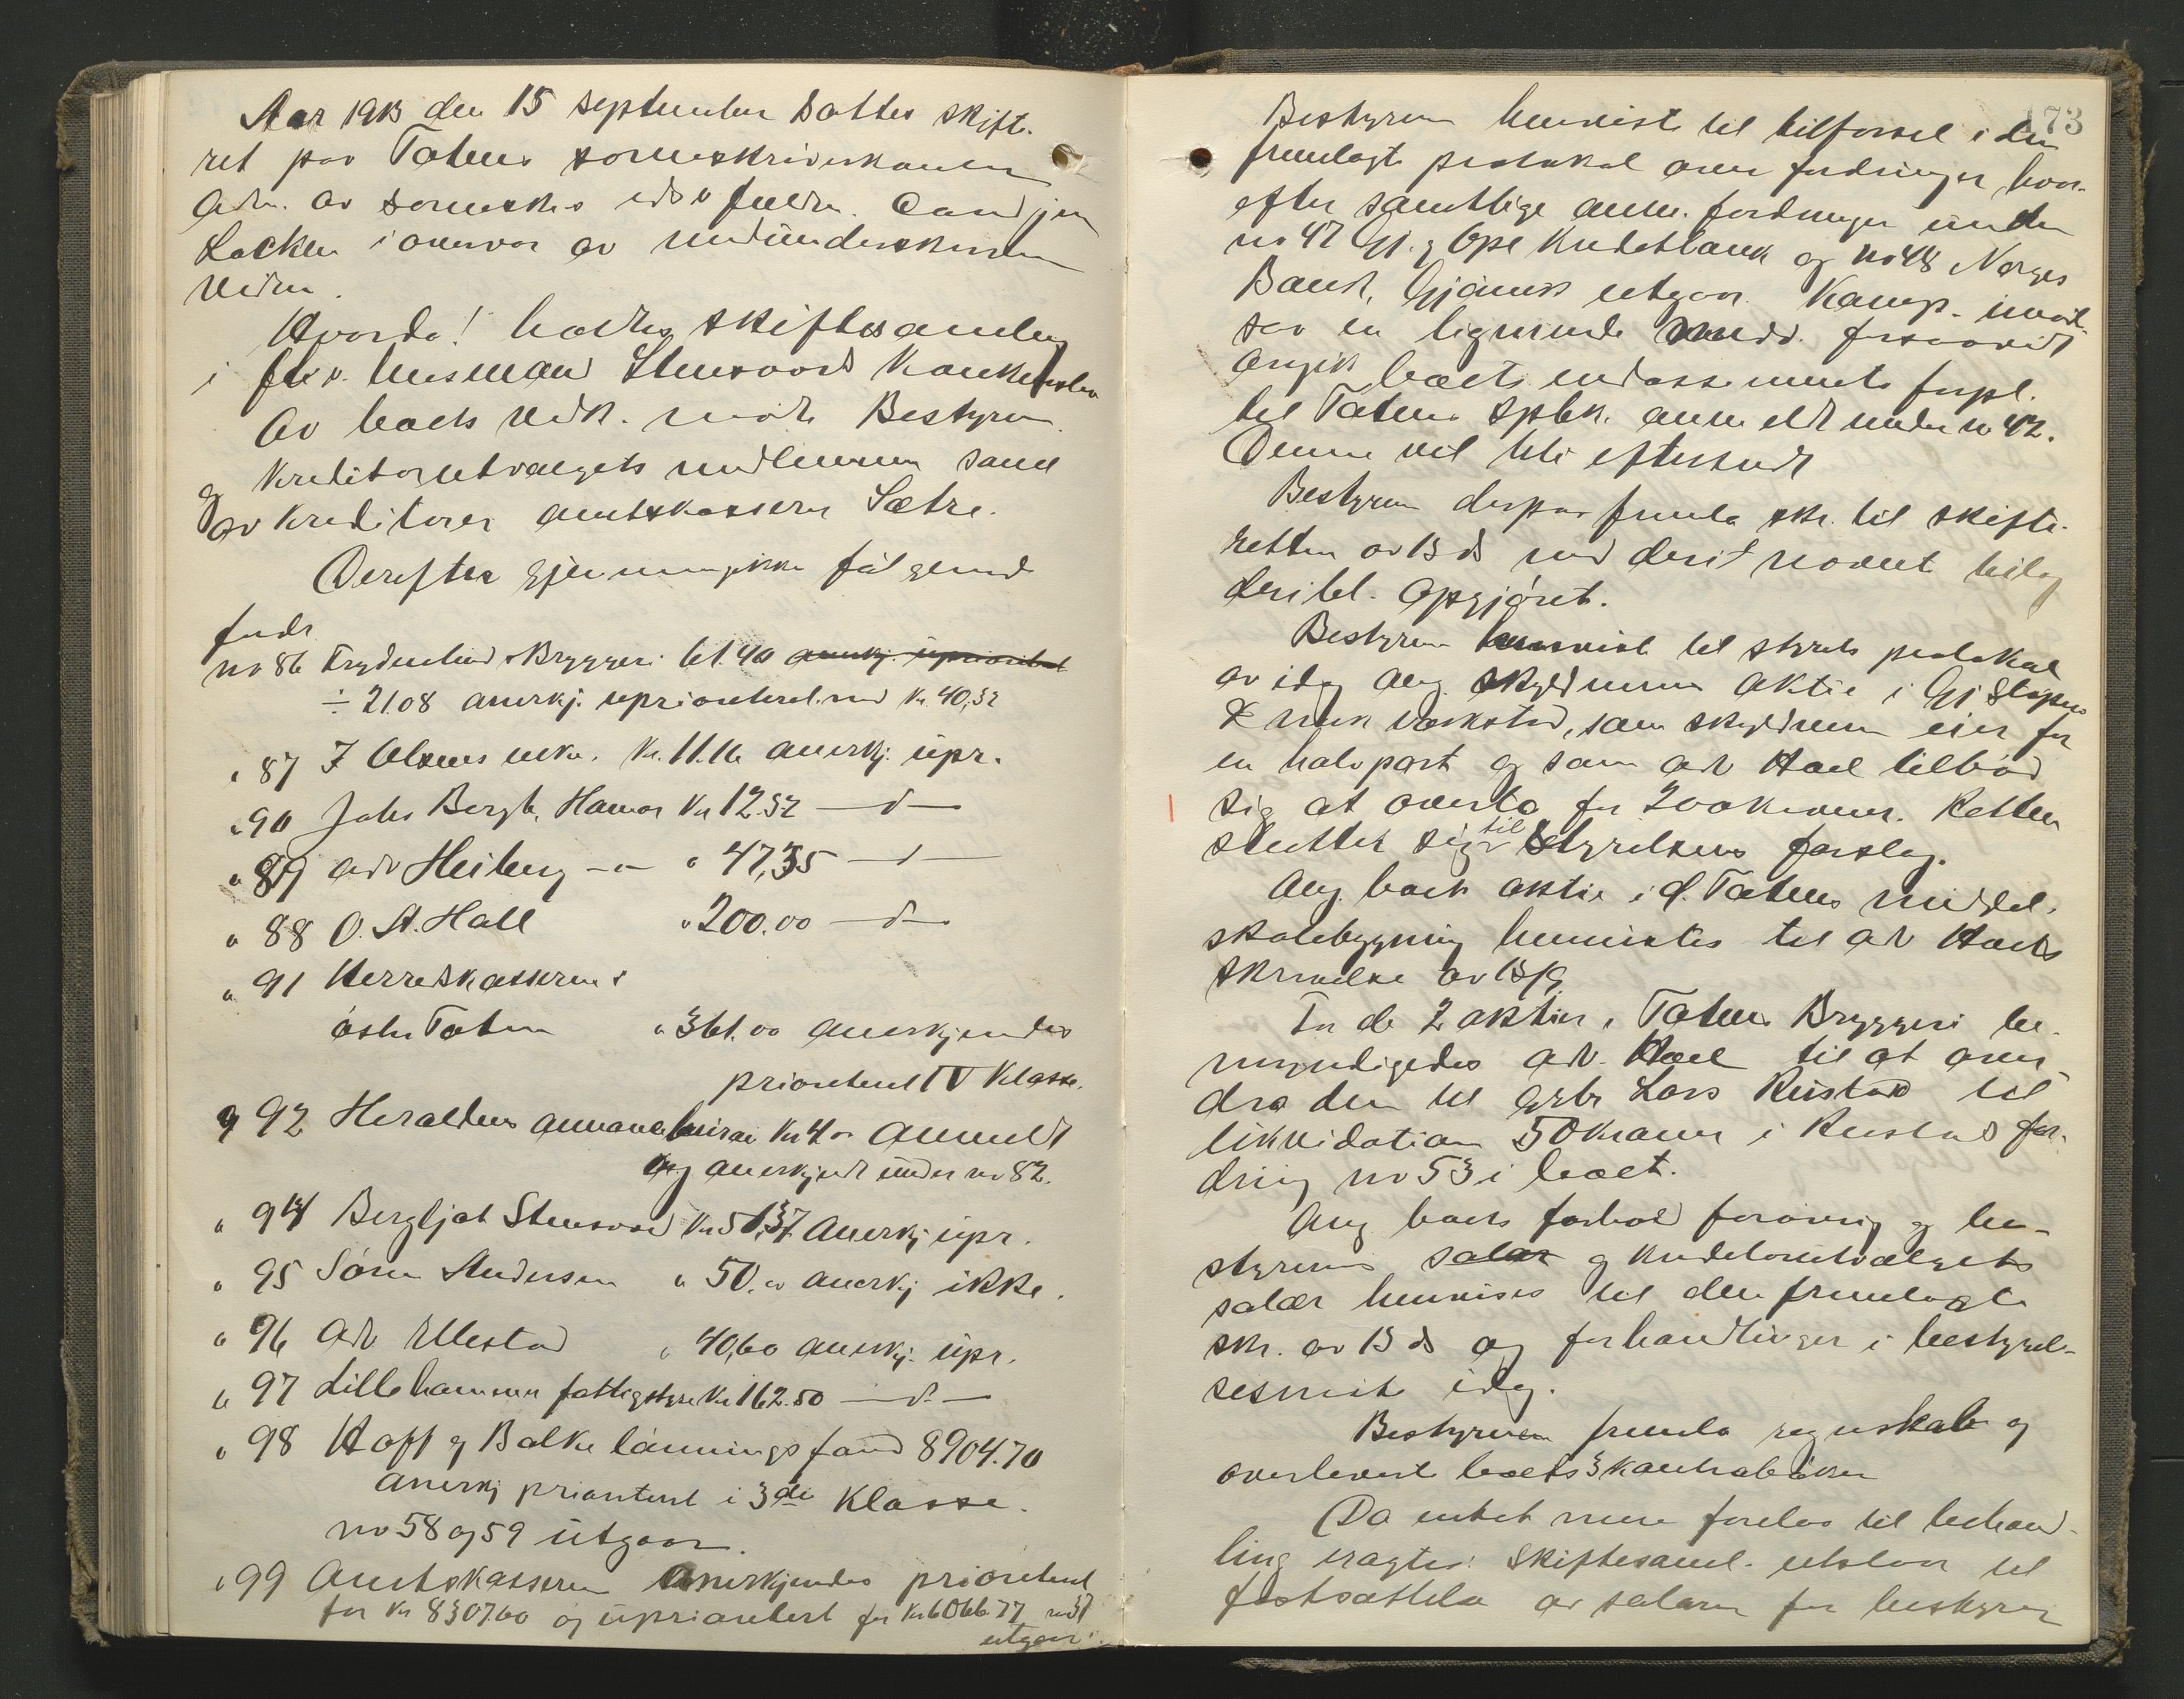 Aar 1913 den 15 september sattes skifte-
ret paa Totens sorenskriverkontor
Adm. av sorenskrs edsv fuldm. Cand jur
Løcken i overvær av medunderskrevne
vidne.
Hvorda! holdtes skiftesamling
i fhv. lensmand Stensvold konkursbo
Av boets vedk. mødte Bestyreren
kreditorutvalgets medlemmer samt
og av kreditorer amtskasserer Sætre.
Derefter gjennemgikkes følgende
fordr
no 86 Frydenlund Bryggeri 61.40 anerkj. uprioritert
÷ 21.08 anerkj. uprioriteret med kr. 40,32
" 87 J Olsens enke. Kr. 11.16 anerkj. upr.
" 90 Johs Bergh, Hamar Kr 12.52 —d—
" 89 adv Heiberg —"— " 47,35 —d—
" 88 O. A. Hall " 200.00 —d—
" 91 Herredskassereren i
østre Toten " 361.00 anerkjendes
prioritert IV Klasse.
" 92 Heraldens annoncebureau Kr 4 00 anmeldt
og anerkjendt under no 82.
" 94 Bergljot Stensvold Kr 51,37 anerkj upr.
" 95 Søren Andersen " 50.00 anerkj ikke.
" 96 adv. Ullestad " 40,60 anerkj. upr.
" 97 Lillehammer fattigstyre Kr 162.50 —d—
" 98 Hoff og Balke lønningsfond 8904.70
anerkj prioritert i 3de Klasse.
no 58 og 59 utgaar.
" 99 Amtskassereren anerkjendes prioritert
for Kr 8307.60 og uprioritert for Kr 6066.77 no 37
utgaar.
173
Bestyreren henviste til tilførsel i den
fremlagte protokol over fordringer, hvor-
efter samtlige anm. fordringer under
no 47 Gj. og Opl Kreditbank og no 48 Norges
Bank, Gjøvik utgaar. Kamp. imøte-
saa en lignende medd. forsaavidt
angik boets endossements forpl.
til Totens Spbk. anmeldt under no 42.
Denne vil bli eftersendt
Bestyreren derpaa fremla skr. til skifte-
retten av 13 ds med deri nævnt bilag
deribl. Opgjøret.
Bestyreren henviste til styrets protokol
av idag ang. skyldnerens aktie i Gj Støperi
& mek værksted, som skyldneren eier for
en halvpart og som adv Hoel tilbød
sig at overta for 200 kroner. Retten
sluttet sig til Styrelsens forslag.
Ang. boets aktie i Ø. Totens middel-
skolebygning henvistes til adv Hoels
skrivelse av 13/9
For de 2 aktier i Totens Bryggeri be-
myndigedes adv. Hoel til at over-
dra dem til gbr Lars Rustad til
likvidation 50 kroner i Rustads for-
dring no 53 i boet.
Ang boets forhold forøvrig og be-
styrerens salær og kreditorutvalgets
salær henvises til den fremlagte
skr. av 13 ds og forhandlinger i bestyrel-
sesmøte idag.
Bestyreren fremla regnskab og
overleverte boets 3 kontrabøker
Da intet mere forelaa til behand-
ling eragtes: Skiftesaml. utstaar til
fastsættelse av salærer for bestyrer